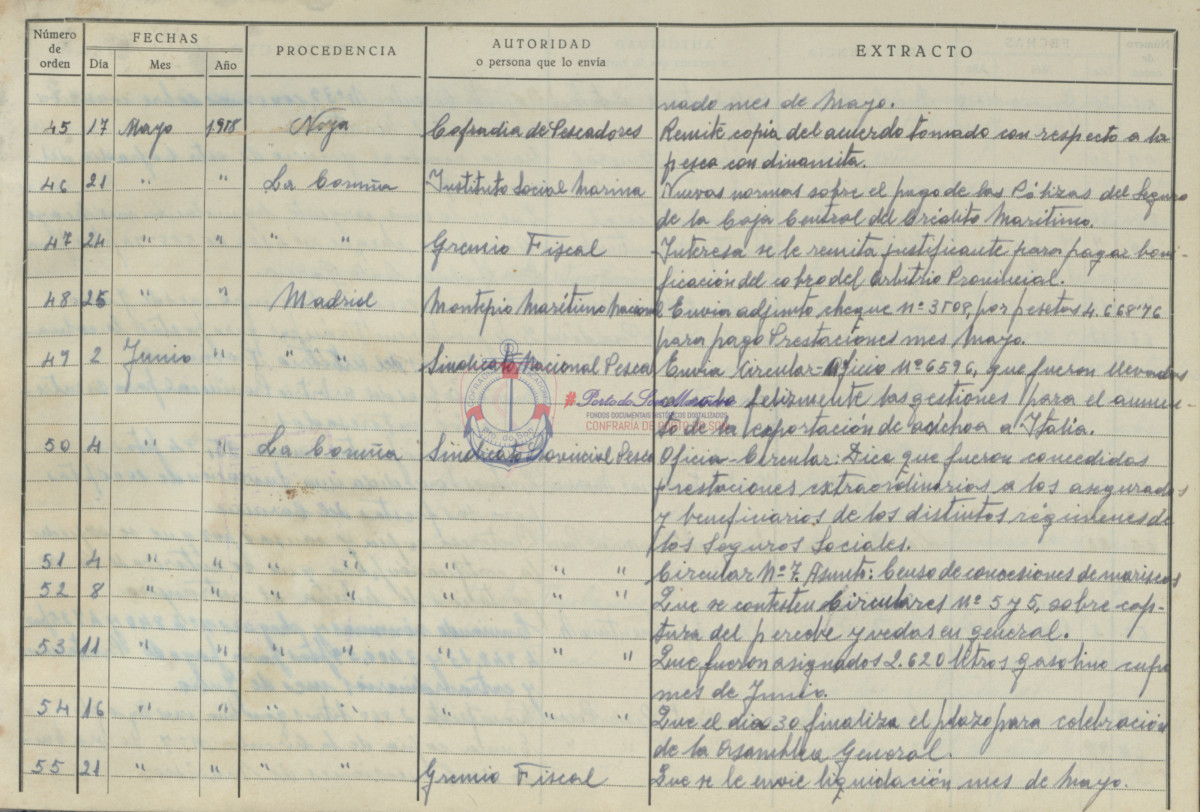 Número de orden FECHAS PROCEDENCIA AUTORIDAD o persona que lo envía EXTRACTO
Día Mes Año
nado mes de Mayo.
45 17 Mayo 1958 Noya Cofradia de Pescadores Remite copia del acuerdo tomado con respecto a la
pesca con dinamita.
46 21 " " La Coruña Instituto Social Marina Nuevas normas sobre el pago de las Pólizas del Seguro
de la Caja Central del Crédito Maritimo.
47 24 " " " " Gremio Fiscal Interesa se le remita justificante para pagar boni-
ficación del cobro del Arbitrio Provincial.
48 25 " " Madrid Montepio Maritimo Nacional Envia adjunto cheque Nº 3508, por pesetas 4.668'76
para pago Prestaciones mes Mayo.
49 2 Junio " " " Sindicato Nacional Pesca Envia Circular-Oficio Nº 6596, que fueron llevadas
a cabo felizmente las gestiones para el aumen-
to de la exportación de adchoa a Italia.
#PortodoSonMariñeiro
FONDOS DOCUMENTAIS HISTÓRICOS DIXITALIZADOS
CONFRARÍA DE PORTO DO SON
50 4 " " La Coruña Sindicato Provincial Pesca Oficio-Circular: Dice que fueron concedidas
prestaciones extraordinarios a los asegurados
y beneficiarios de los distintos régimenes de
los Seguros Sociales.
51 4 " " " " " " Circular Nº 7. Asunto: Censo de concesiones de mariscos
52 8 " " " " " " Que se contesten Circulares Nº 5 y 5, sobre cap-
tura del percebe y vedas en general.
53 11 " " " " " " Que fueron asignados 2.620 litros gasolina cupo
mes de Junio.
54 16 " " " " " " Que el dia 30 finaliza el plazo para celebración
de la Asamblea General.
55 21 " " " " Gremio Fiscal Que se le envie liquidación mes de Mayo.